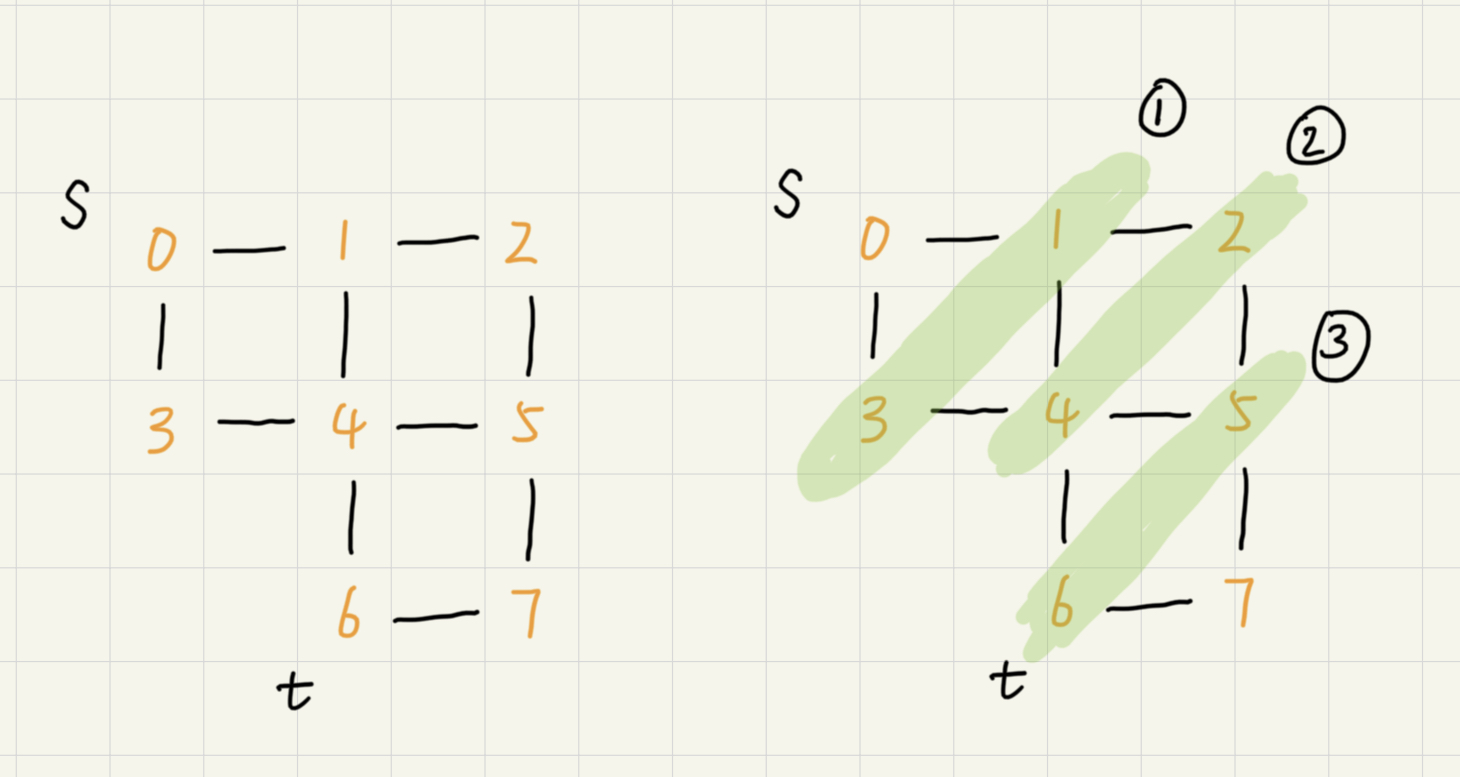 S
0 1 2
3 4 5
6 7
t
①
②
S
0 1 2
③
3 4 5
6 7
t